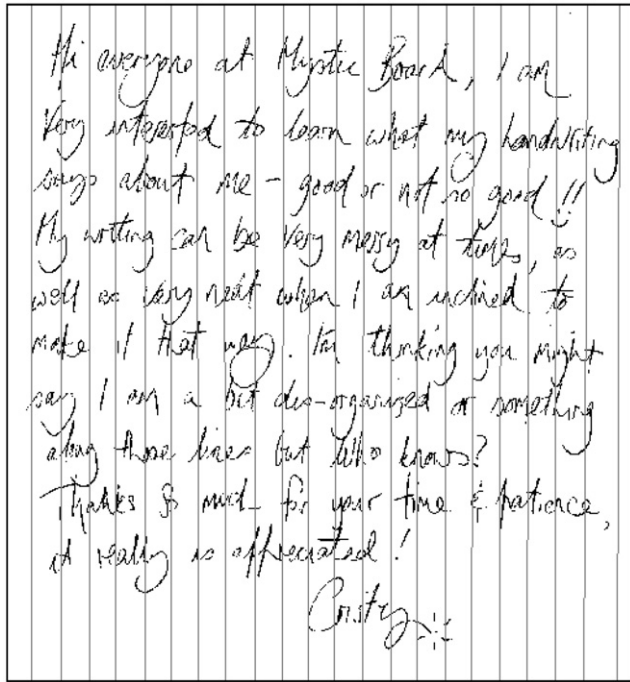 Hi everyone at Mystic Board, I am
Very interested to learn what my handwriting
says about me - good or not so good!!
My writing can be very messy at times, as
well as very neat when I am inclined to
make it that way. I'm thinking you might
say I am a bit dis-organized or something
along those lines but who knows?
Thanks so much for your time & patience,
it really is appreciated!
Cristy